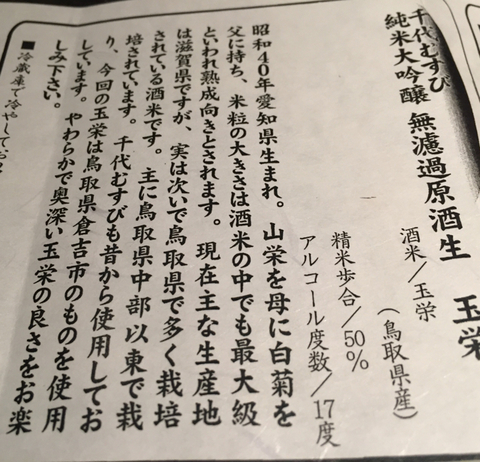 千代むすび
純米大吟醸 無濾過原酒生 玉栄
酒米/玉栄
(鳥取県産)
精米歩合/50%
アルコール度数/17度
昭和40年愛知県生まれ。山栄を母に白菊を
父に持ち、米粒の大きさは酒米の中でも最大級
といわれ熟成向きとされます。現在主な生産地
は滋賀県ですが、実は次いで鳥取県で多く栽培
されている酒米です。主に鳥取県中部以東で栽
培されています。千代むすびも昔から使用してお
り、今回の玉栄は鳥取県倉吉市のものを使用
しています。やわらかで奥深い玉栄の良さをお楽
しみ下さい。
■冷蔵庫で冷やしてお